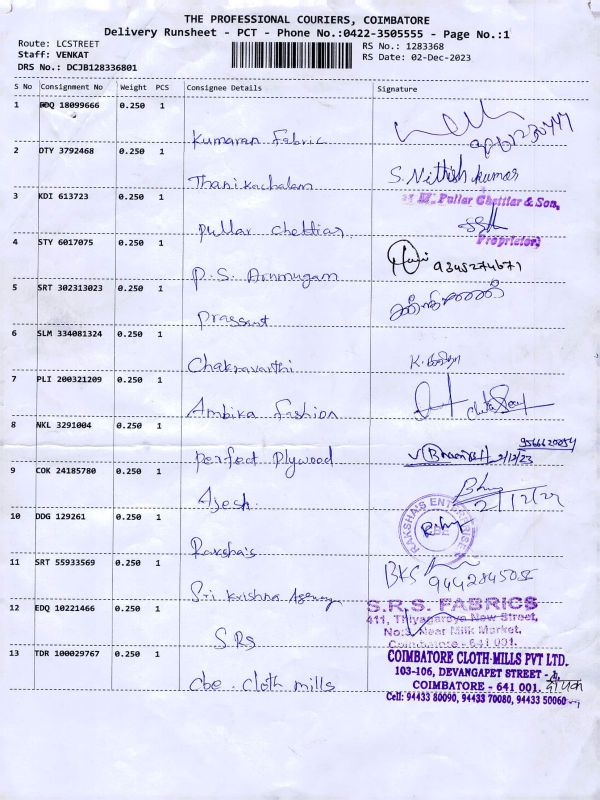 THE PROFESSIONAL COURIERS, COIMBATORE
Delivery Runsheet - PCT - Phone No.:0422-3505555 - Page No.:1
Route: LCSTREET
Staff: VENKAT
DRS No.: DCJB128336801
RS No.: 1283368
RS Date: 02-Dec-2023
S No Consignment No Weight PCS Consignee Details Signature
1 EDQ 18099666 0.250 1
Kumaran Fabric
2 DTY 3792468 0.250 1
Thanikachalam S. Nithish kumar
3 KDI 613723 0.250 1
M. Pullar Chettiar & Son,
Pullar Chettiar
Proprietor
4 STY 6017075 0.250 1
P.S. Arumugam 9345274671
5 SRT 302313023 0.250 1
Prassant
6 SLM 334081324 0.250 1
Chakravarthi
7 PLI 200321209 0.250 1
Ambika Fashion
8 NKL 3291004 0.250 1
Perfect Plywood 2/12/23
9 COK 24185780 0.250 1
Ajesh
10 DDG 129261 0.250 1
RAKSHA'S ENTERPRISE
Raksha's
11 SRT 55933569 0.250 1
BKS 9442845055
Sri Krishna Agency
12 EDQ 10221466 0.250 1
S.R.S. FABRICS
411, Thiyagaraya New Street,
No:3, Near Milk Market,
Coimbatore - 641 001.
SRS
13 TDR 100029767 0.250 1
Cbe. Cloth mills
COIMBATORE CLOTH MILLS PVT LTD.
103-106, DEVANGAPET STREET - 1,
COIMBATORE - 641 001.
Cell: 94433 80090, 94433 70080, 94433 50060